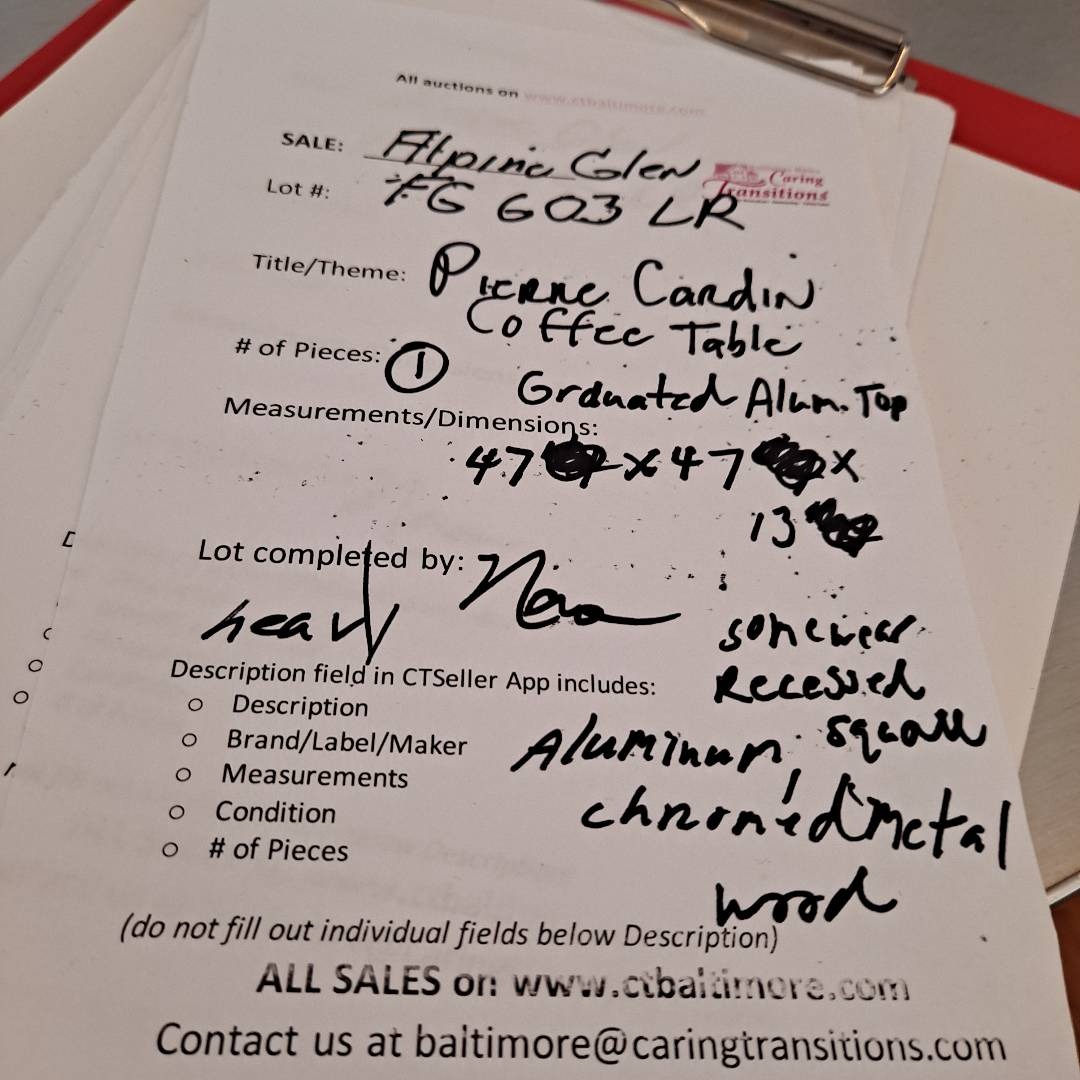 All auctions on www.ctbaltimore.com
SALE: Alpine Glen
Caring Transitions
Lot #: FG 603 LR
Title/Theme: Pierre Cardin
Coffee Table
# of Pieces: 1
Graduated Alum. Top
Measurements/Dimensions:
47 x 47 x
13
Lot completed by:
heavy
some wear
Recessed
Aluminum, square
chromed metal
wood
Description field in CTSeller App includes:
○ Description
○ Brand/Label/Maker
○ Measurements
○ Condition
○ # of Pieces
(do not fill out individual fields below Description)
ALL SALES on www.ctbaltimore.com
Contact us at baltimore@caringtransitions.com